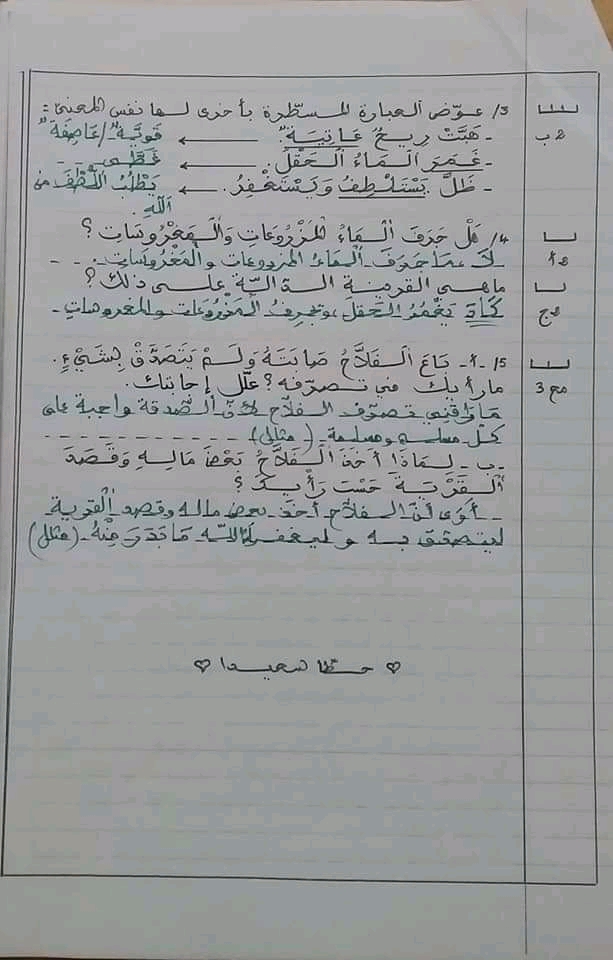 3/ عوّض العبارة المسطّرة بأخرى لها نفس المعنى:
- هَبَّتْ رِيحٌ عَاتِيَةٌ. ← قَوِيَّةٌ / عَاصِفَةٌ
2ب
- غَمَرَ الْمَاءُ الْحَقْلَ. ← غَطَّى
- ظَلَّ يَسْتَلْطِفُ وَيَسْتَغْفِرُ. ← يَطْلُبُ اللُّطْفَ من
اللّهِ.
4/ هَلْ جَرَفَ الْمَاءُ الْمَزْرُوعَاتِ وَالْمَغْرُوسَاتِ؟
2أ
لَا مَا جَرَفَ الْمَاءُ المزروعات والْمَغْرُوسَاتِ
ما هي القرينة الدّالّة على ذلك؟
2ج
كَادَ يَغْمُرُ الحقلَ، ويَجْرِفُ الْمَزْرُوعَاتِ والمغروسات
5/ أ- بَاعَ الْفَلَّاحُ صَابَتَهُ وَلَمْ يَتَصَدَّقْ بِشَيْءٍ.
مع3
ما رأيك في تصرّفه؟ علّل إجابتك.
ما وافقني تصرّف الفلّاح لأنّ الصّدقة واجبة على
كلّ مسلم ومسلمة (مثال)
ب- لِمَاذَا أَخَذَ الْفَلَّاحُ بَعْضَ مَالِهِ وَقَصَدَ
الْقَرْيَةَ حَسَبَ رَأْيِكَ؟
أرى أنّ الفلّاح أخذ بعض ماله وقصد القرية
ليتصدّق به وليغفر له اللّه مَا بَدَرَ مِنْهُ (مثال)
♡ حظّا سعيدا ♡